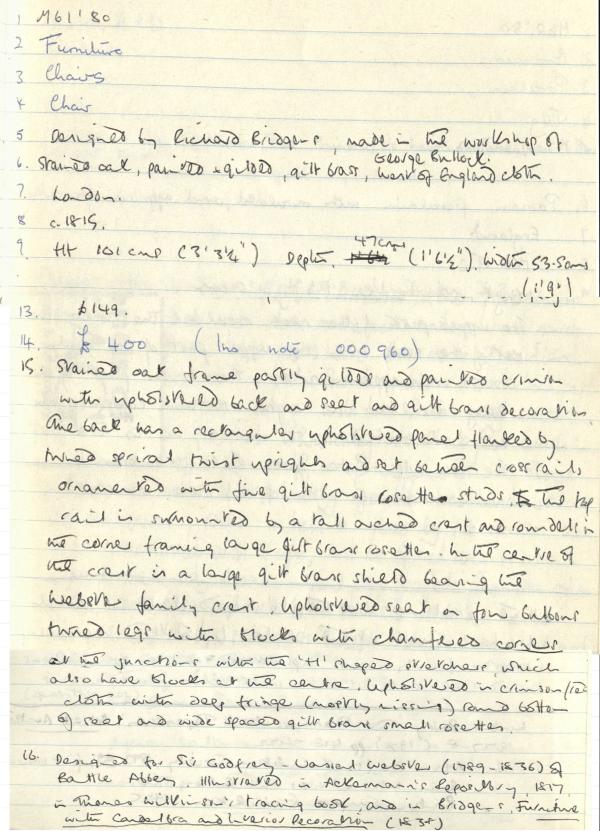 1 M61'80
2 Furniture
3 Chairs
4 Chair
5 Designed by Richard Bridgens, made in the workshop of
George Bullock.
6. Stained oak, painted + gilded, gilt brass, West of England cloth.
7. London.
8 c.1815.
9. Ht 101 cms (3'3¼") Depth. 47cms (1'6½"). Width 53.5cms
(1'9")
13. £149.
14. £ 400 (Ins note 000960)
15. Stained oak frame partly gilded and painted crimson
with upholstered back and seat and gilt brass decoration.
The back has a rectangular upholstered panel flanked by
turned spiral twist uprights and set between cross rails
ornamented with five gilt brass rosette studs. The top
rail is surmounted by a tall arched crest and roundels in
the corner framing large gilt brass rosettes. In the centre of
the crest is a large gilt brass shield bearing the
Webster family crest. Upholstered seat on four bulbous
turned legs with blocks with chamfered corners
at the junctions with the 'H' shaped stretchers, which
also have blocks at the centre. Upholstered in crimson/red
cloth with deep fringe (mostly missing) round bottom
of seat and wide spaced gilt brass small rosettes.
16. Designed for Sir Godfrey Vassal Webster (1789-1836) of
Battle Abbey. Illustrated in Ackermann's Repository, 1817,
in Thomas Wilkinson's tracing book, and in Bridgens, Furniture
with Candelabra and Interior Decoration (1838)